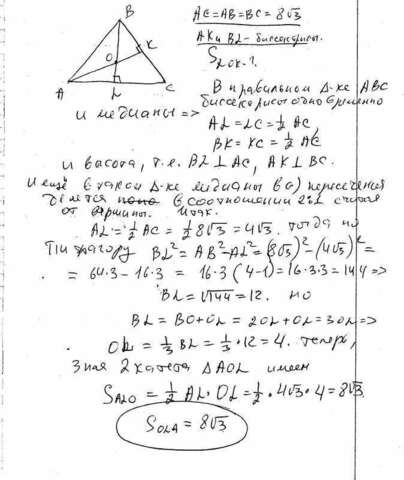 B
O
K
A
L
C
AC=AB=BC=8√3
AK и BL - биссектрисы.
S LOK - ?
В правильном Δ-ке ABC
биссектрисы одновременно
и медианы =>
AL=LC=½AC,
BK=KC=½AC
и высота, т.е. BL⊥AC, AK⊥BC.
и ещё в таком Δ-ке медианы в (·) пересечения
делятся в соотношении 2:1 считая
от вершины. Итак.
AL=½AC=½8√3=4√3. тогда по
Пифагору BL²=AB²-AL²=(8√3)²-(4√3)²=
=64·3-16·3=16·3(4-1)=16·3·3=144=>
BL=√144=12. но
BL=BO+OL=2OL+OL=3OL=>
OL=⅓BL=⅓·12=4. теперь,
зная 2 катета ΔAOL имеем
S ALO=½AL·OL=½·4√3·4=8√3
S OLA=8√3